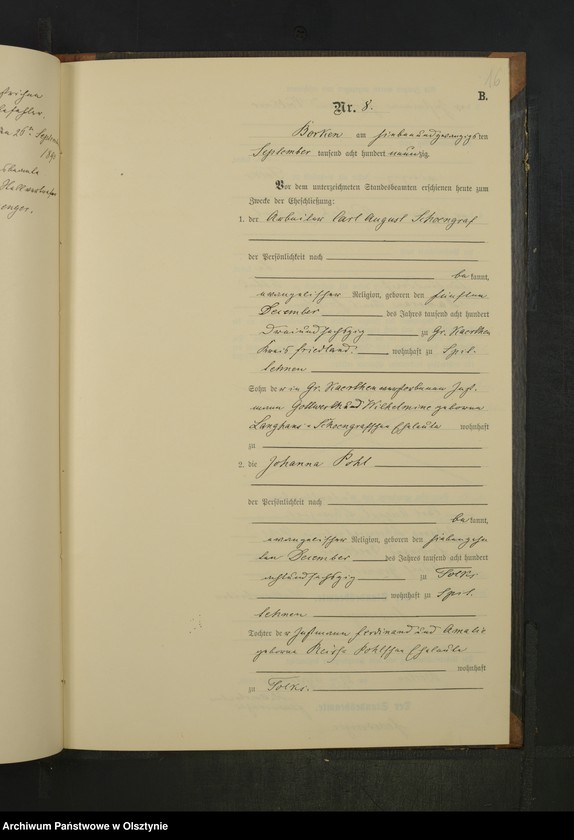 16
B.
Nr. 8.
Borken am siebenundzwanzigsten
September tausend acht hundert neunzig
Vor dem unterzeichneten Standesbeamten erschienen heute zum
Zwecke der Eheschließung:
1. der Arbeiter Carl August Schoengraf
der Persönlichkeit nach
bekannt,
evangelischer Religion, geboren den fünften
December des Jahres tausend acht hundert
dreiundsechszig zu Gr. Kaerthen
Kreis Friedland wohnhaft zu Spit-
lehnen
Sohn der in Gr. Kaerthen verstorbenen Inst-
mann Gottlieb und Wilhelmine geborene
Langhans - Schoengrafschen Eheleute wohnhaft
zu
2. die Johanna Pohl
der Persönlichkeit nach
bekannt,
evangelischer Religion, geboren den siebenzehn
ten December des Jahres tausend acht hundert
achtundsechszig zu Tolks
wohnhaft zu Spit-
lehnen
Tochter der Instmann Ferdinand und Amalie
geborene Pohlschen Eheleute
wohnhaft
zu Tolks.
Archiwum Państwowe w Olsztynie